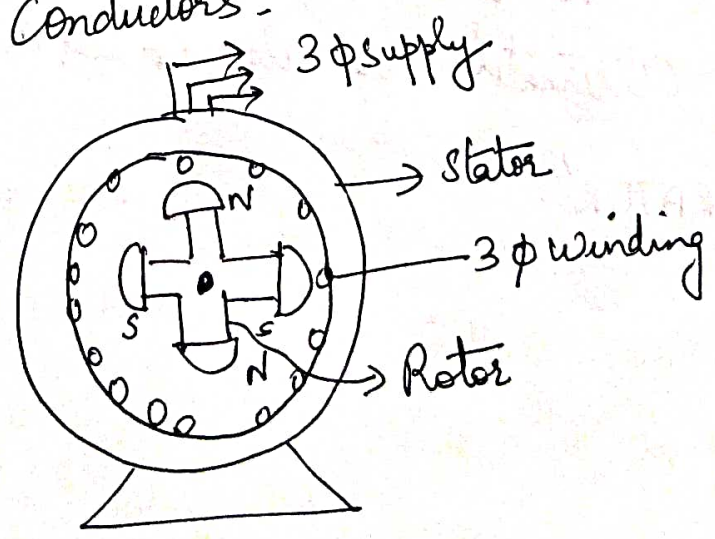 Conductors.
3 ϕ supply
Stator
N
3 ϕ winding
S
S
N
Rotor